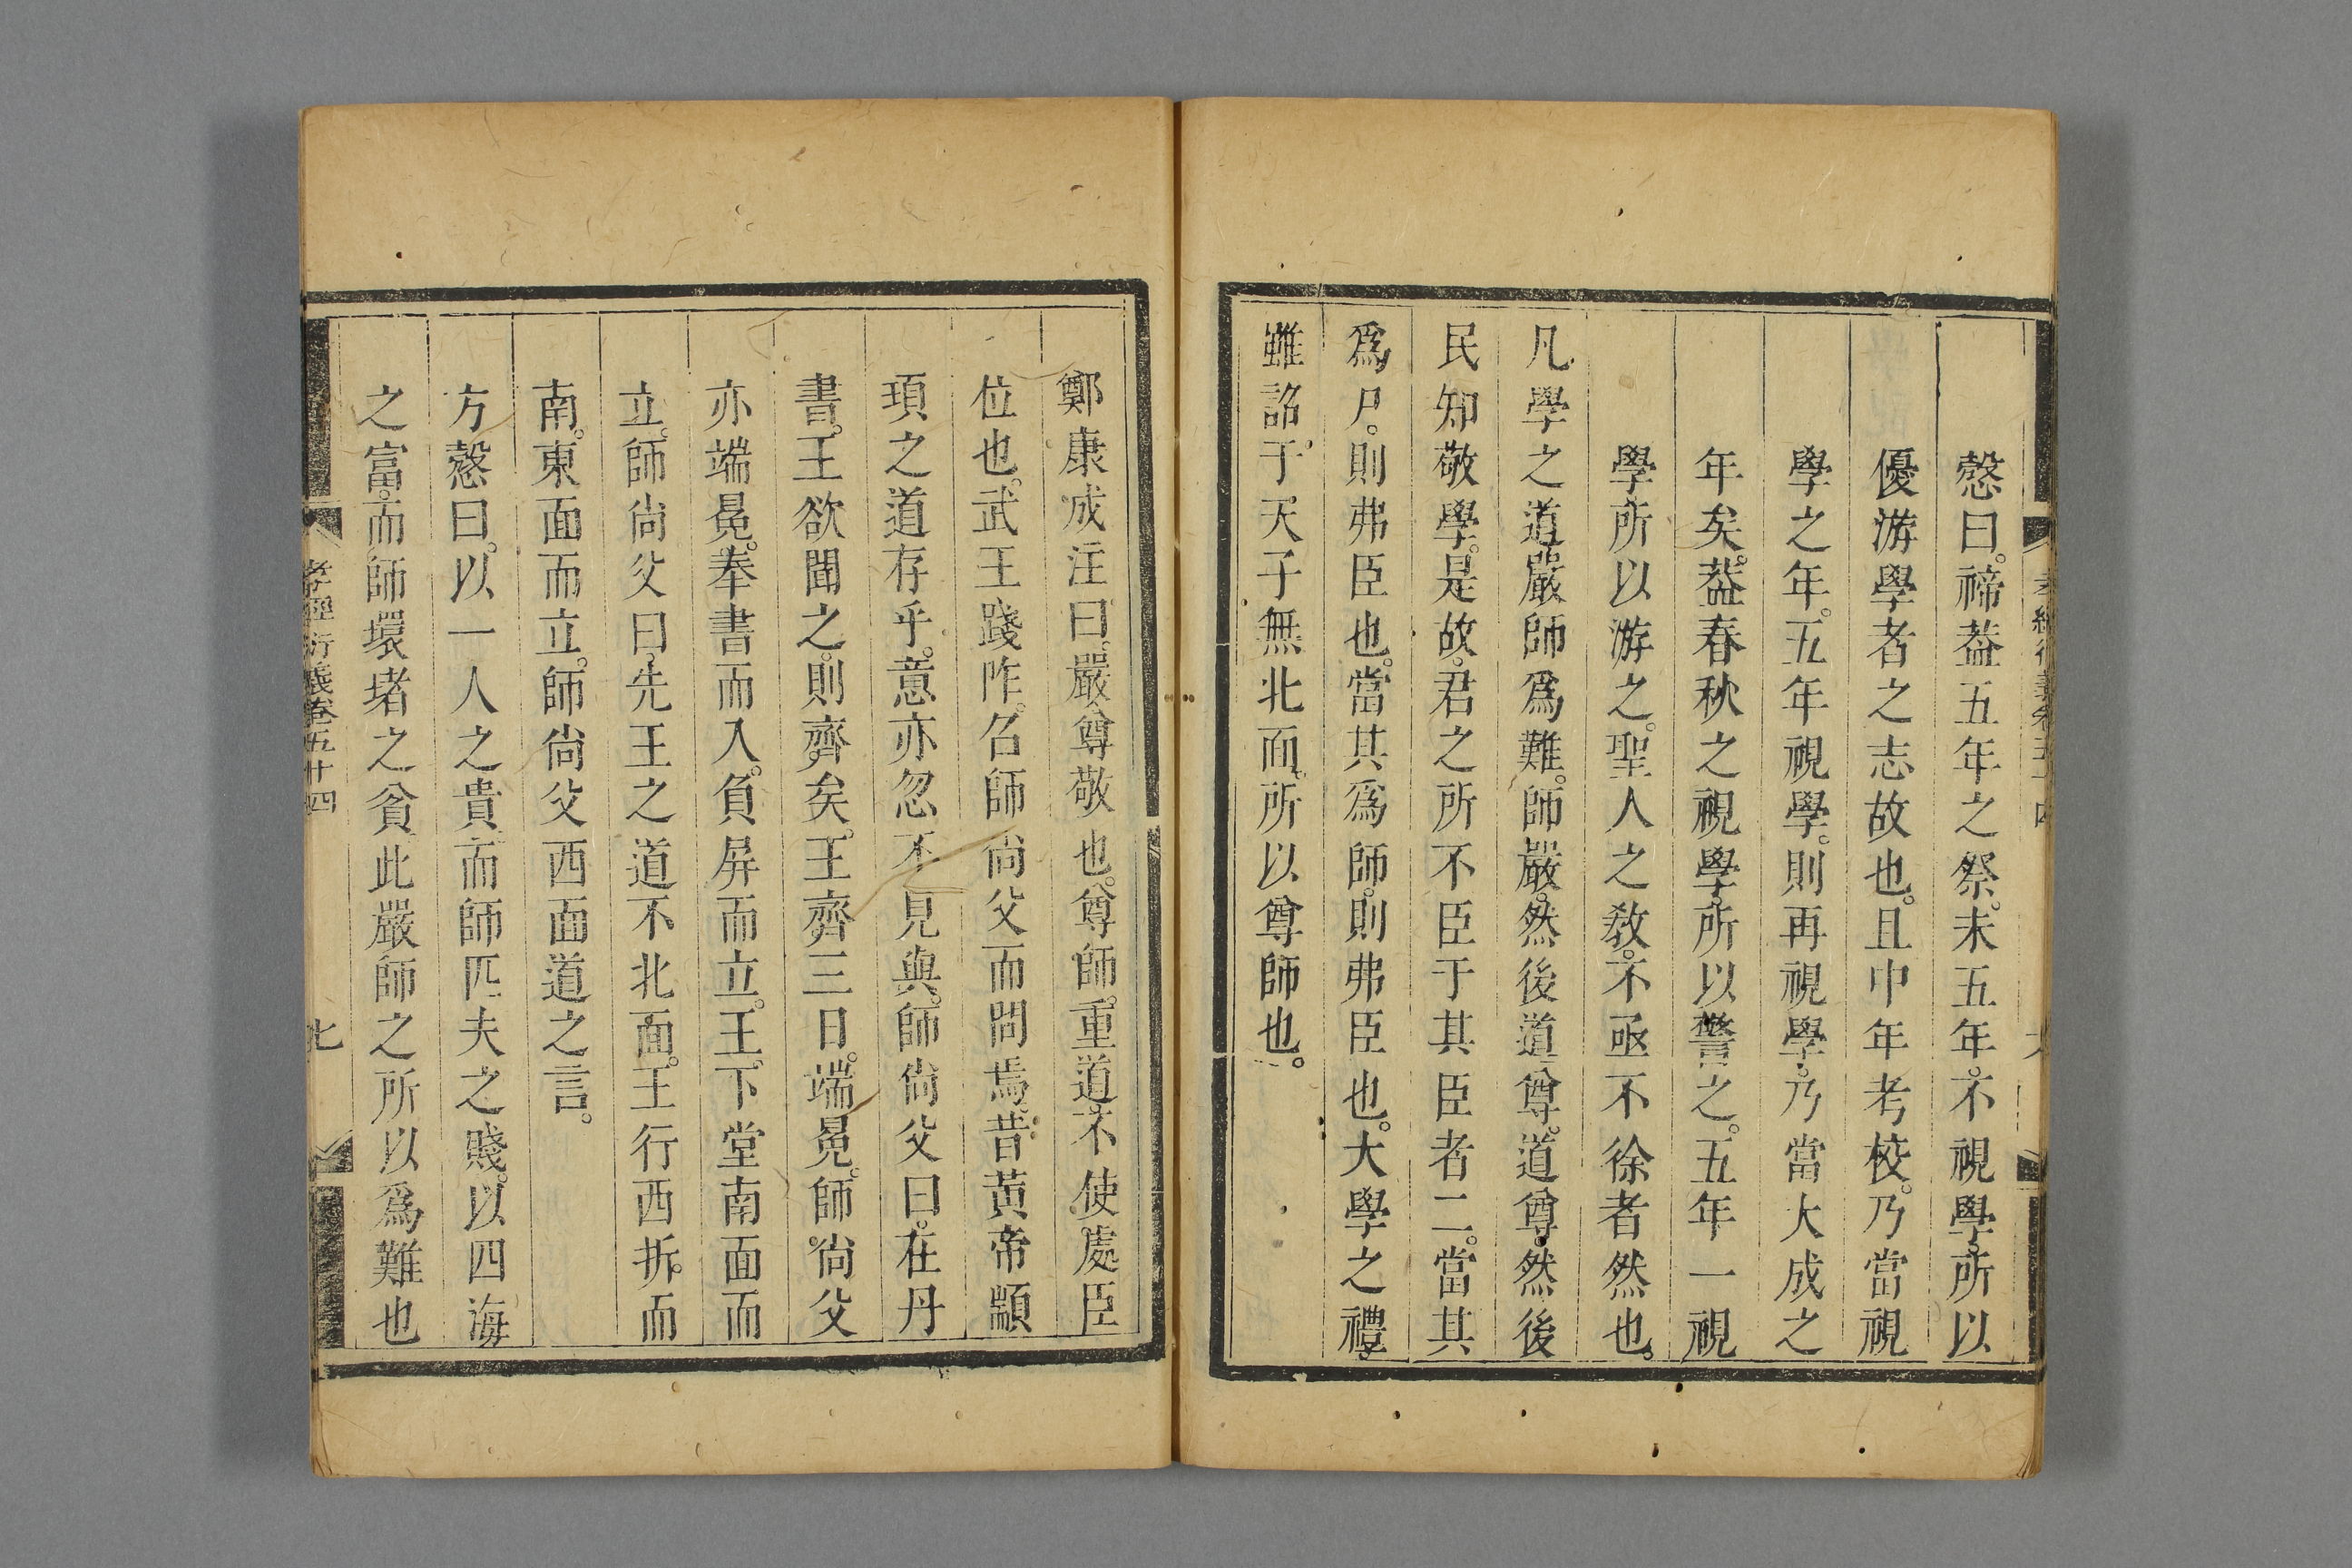 慤曰。禘葢五年之祭。未五年。不視學。所以
優游學者之志故也。且中年考校。乃當視
學之年。五年視學。則再視學。乃當大成之
年矣。葢春秋之視學。所以警之。五年一視
學所以游之。聖人之敎。不亟不徐者然也。
凡學之道嚴師爲難。師嚴。然後道尊。道尊。然後
民知敬學。是故。君之所不臣于其臣者二。當其
爲尸。則弗臣也。當其爲師。則弗臣也。大學之禮。
雖詔于天子無北面。所以尊師也。
鄭康成注曰。嚴尊敬也。尊師。重道。不使處臣
位也。武王踐阼。召師尙父而問焉。昔黃帝顓
頊之道存乎。意亦忽不見與。師尙父曰。在丹
書。王欲聞之。則齊矣。王齊三日。端冕。師尙父
亦端冕。奉書而入。負屏而立。王下堂南面而
立。師尙父曰先王之道不北面。王行西折。而
南。東面而立。師尙父西面道之言。
方慤曰。以一人之貴。而師匹夫之賤。以四海
之富。而師環堵之貧。此嚴師之所以爲難也
孝經衍義卷五十四
七